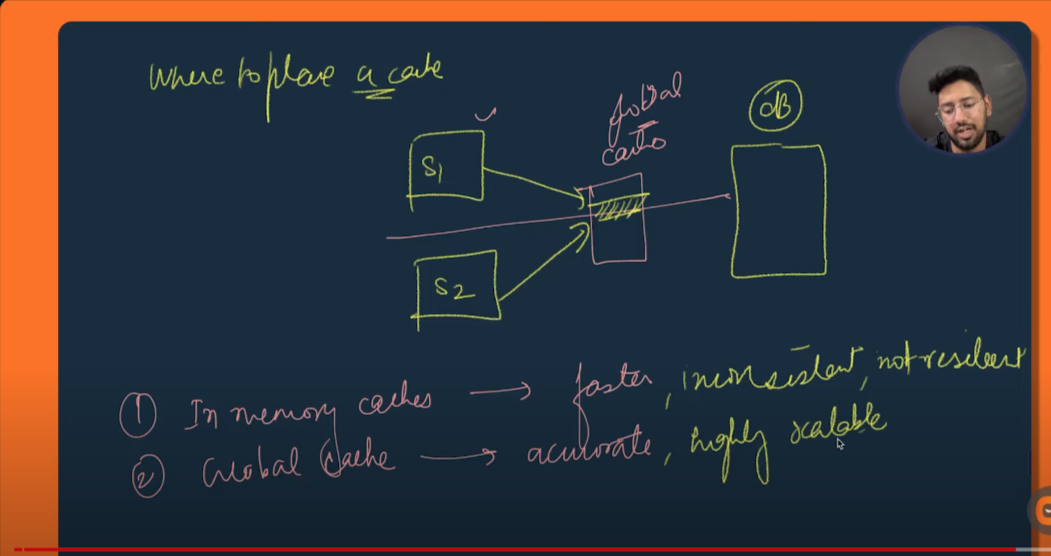 Where to place a cache
DB
Global
cache
S1
S2
① In memory caches → faster, inconsistent, not resilient
② Global Cache → accurate, highly scalable